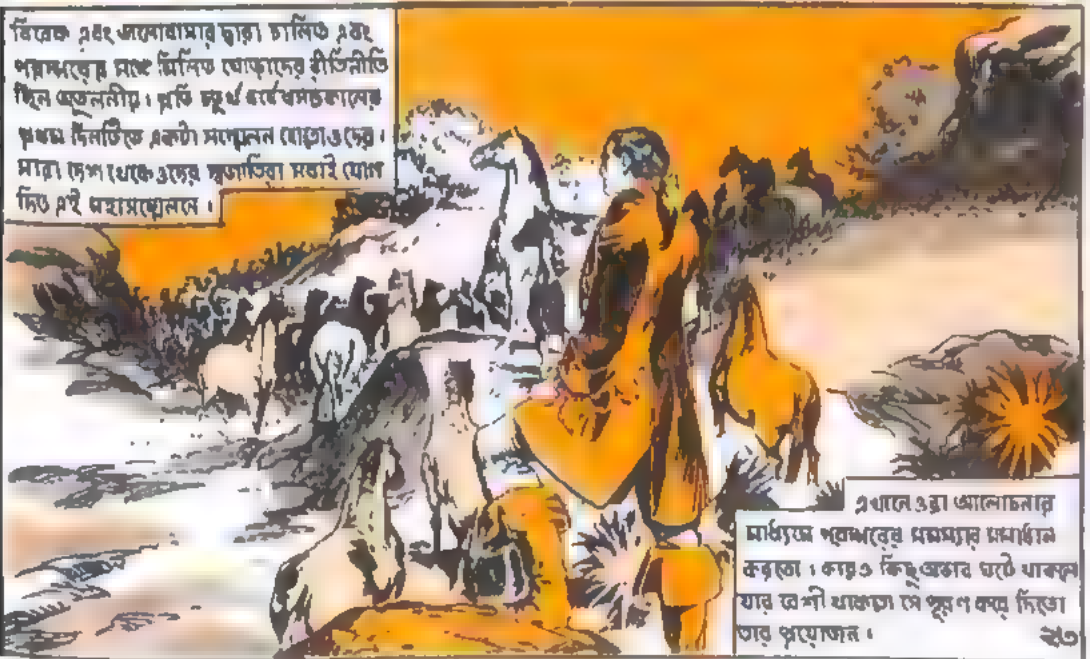 বিবেক এবং ভালোবাসার দ্বারা চালিত এবং
পরস্পরের সঙ্গে মিলিত ঘোড়াদের রীতিনীতি
ছিল অতুলনীয়। প্রতি চতুর্থ বর্ষে বসন্তকালের
প্রথম দিনটিতে একটা সম্মেলন হোতো ওদের।
সারা দেশ থেকে ওদের স্বজাতিরা সবাই যোগ
দিত এই মহাসম্মেলনে।
এখানে ওরা আলোচনার
মাধ্যমে পরস্পরের সমস্যার সমাধান
করতো। কারও কিছু অভাব ঘটে থাকলে
যার বেশী থাকতো সে পূরণ করে দিতো
তার প্রয়োজন।
২৩